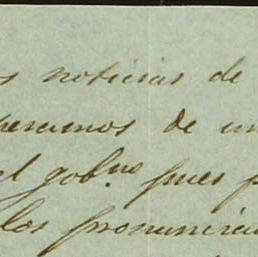 s noticias de
peramos de un
el gob.no pues p
los pronuncia